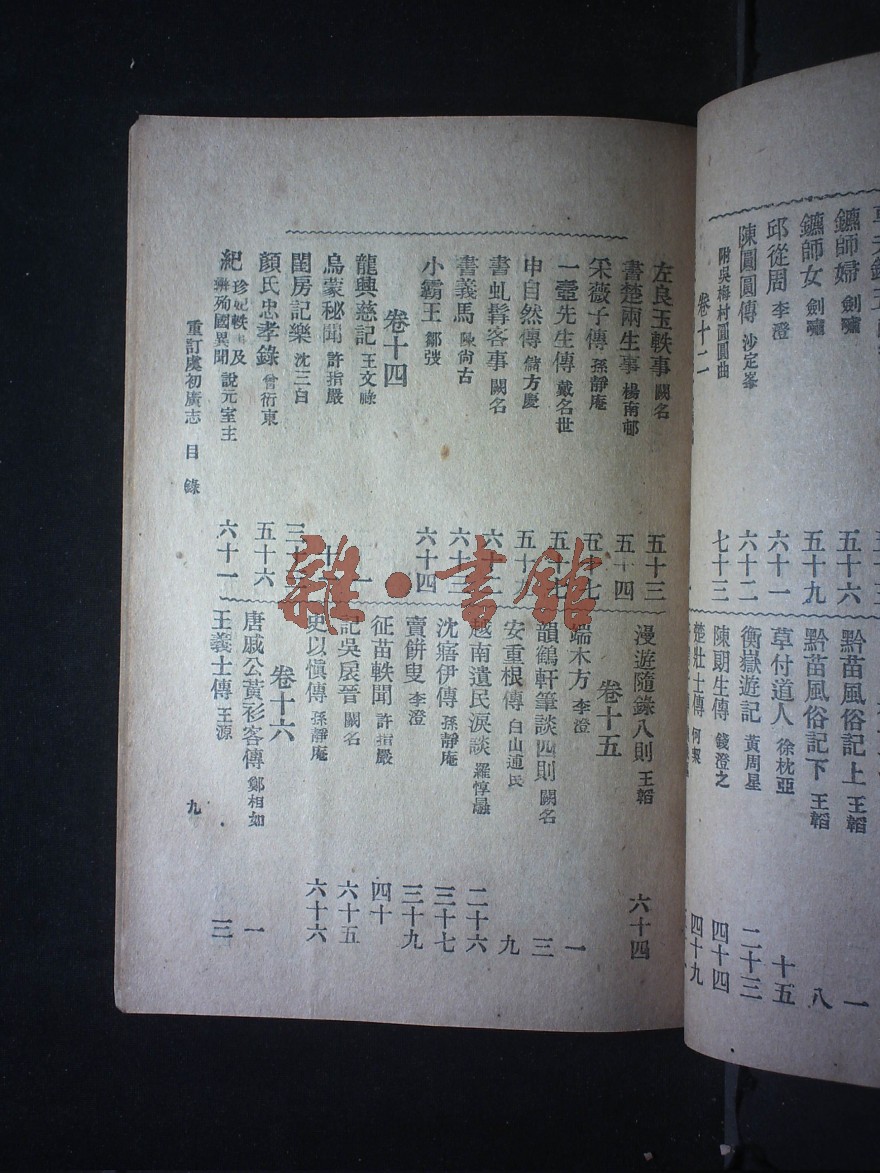 鑣師婦 劍嘯
五十六
鑣師女 劍嘯
五十九
邱從周 李澄
六十一
陳圓圓傳 沙定峯
六十二
附吳梅村圓圓曲
七十三
卷十二
黔苗風俗記上 王韜
一
黔苗風俗記下 王韜
八
草付道人 徐枕亞
十五
衡嶽遊記 黃周星
二十三
陳朗生傳 錢澄之
四十四
楚壯士傳
四十九
左良玉軼事 闕名
五十三
書楚兩生事 楊南邨
五十四
采薇子傳 孫靜庵
五十七
一壼先生傳 戴名世
申自然傳 儲方慶
書虬髯客事 闕名
書義馬 陳尙古
小霸王 鄒弢
六十四
卷十四
龍興慈記 王文祿
一
烏蒙秘聞 許指嚴
閨房記樂 沈三白
顏氏忠孝錄 曾衍東
五十六
紀珍妃軼 及 殉國異聞 說元室主
六十一
漫遊隨錄八則 王韜
六十四
卷十五
端木方 李澄
一
韻鶴軒筆談四則 闕名
三
安重根傳 白山逋民
九
越南遺民淚談 羅惇曧
二十六
沈痦伊傳 孫靜庵
三十七
賣餠叟 李澄
三十九
征苗軼聞 許指嚴
四十
記吳扆晉 闕名
六十五
史以愼傳 孫靜庵
六十六
卷十六
唐戚公黃衫客傳 鄭相如
一
王義士傳 王源
三
重訂虞初廣志 目錄
九
雜·書館